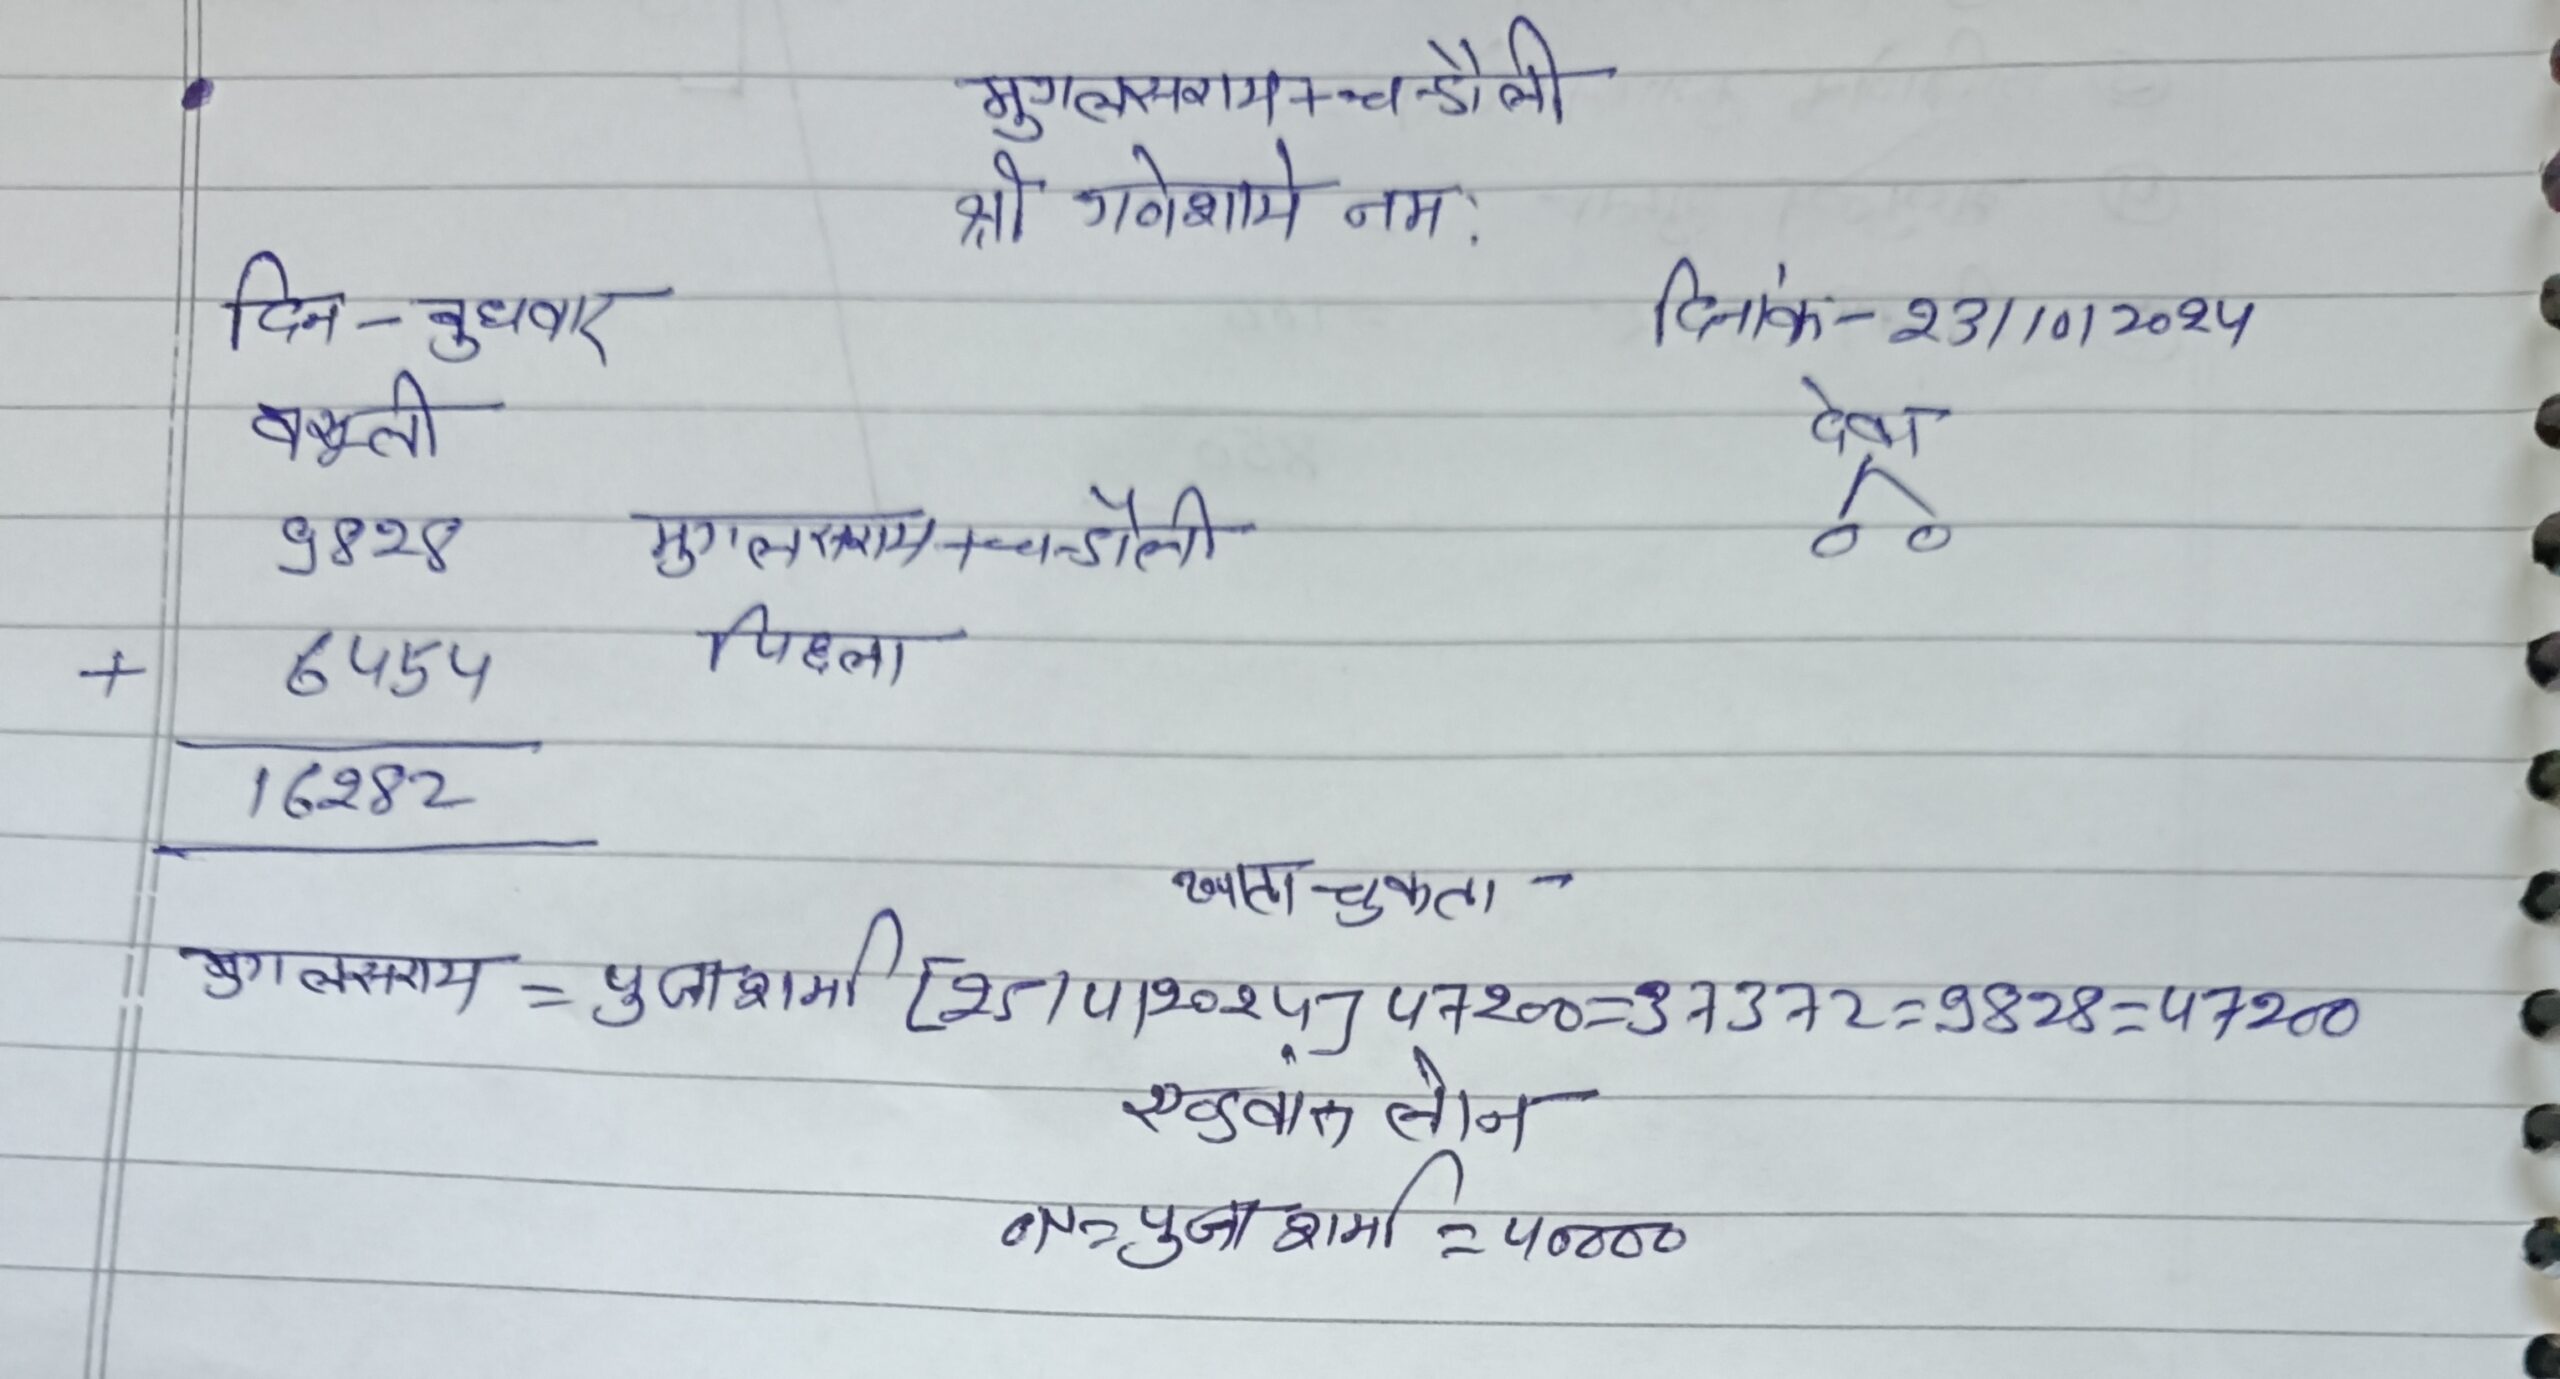 मुगलसराय + चन्डौली
श्री गणेशाये नम:
दिन - बुधवार दिनांक - 23/10/2024
वसूली देना
9828 मुगलसराय + चन्डौली 00
+ 6454 पिछला
16282
खाता चुकता -
मुगलसराय = पुजा शर्मा [25/4/2024] 47200=37372=9828=47200
एडवांस लोन
= पुजा शर्मा = 40000